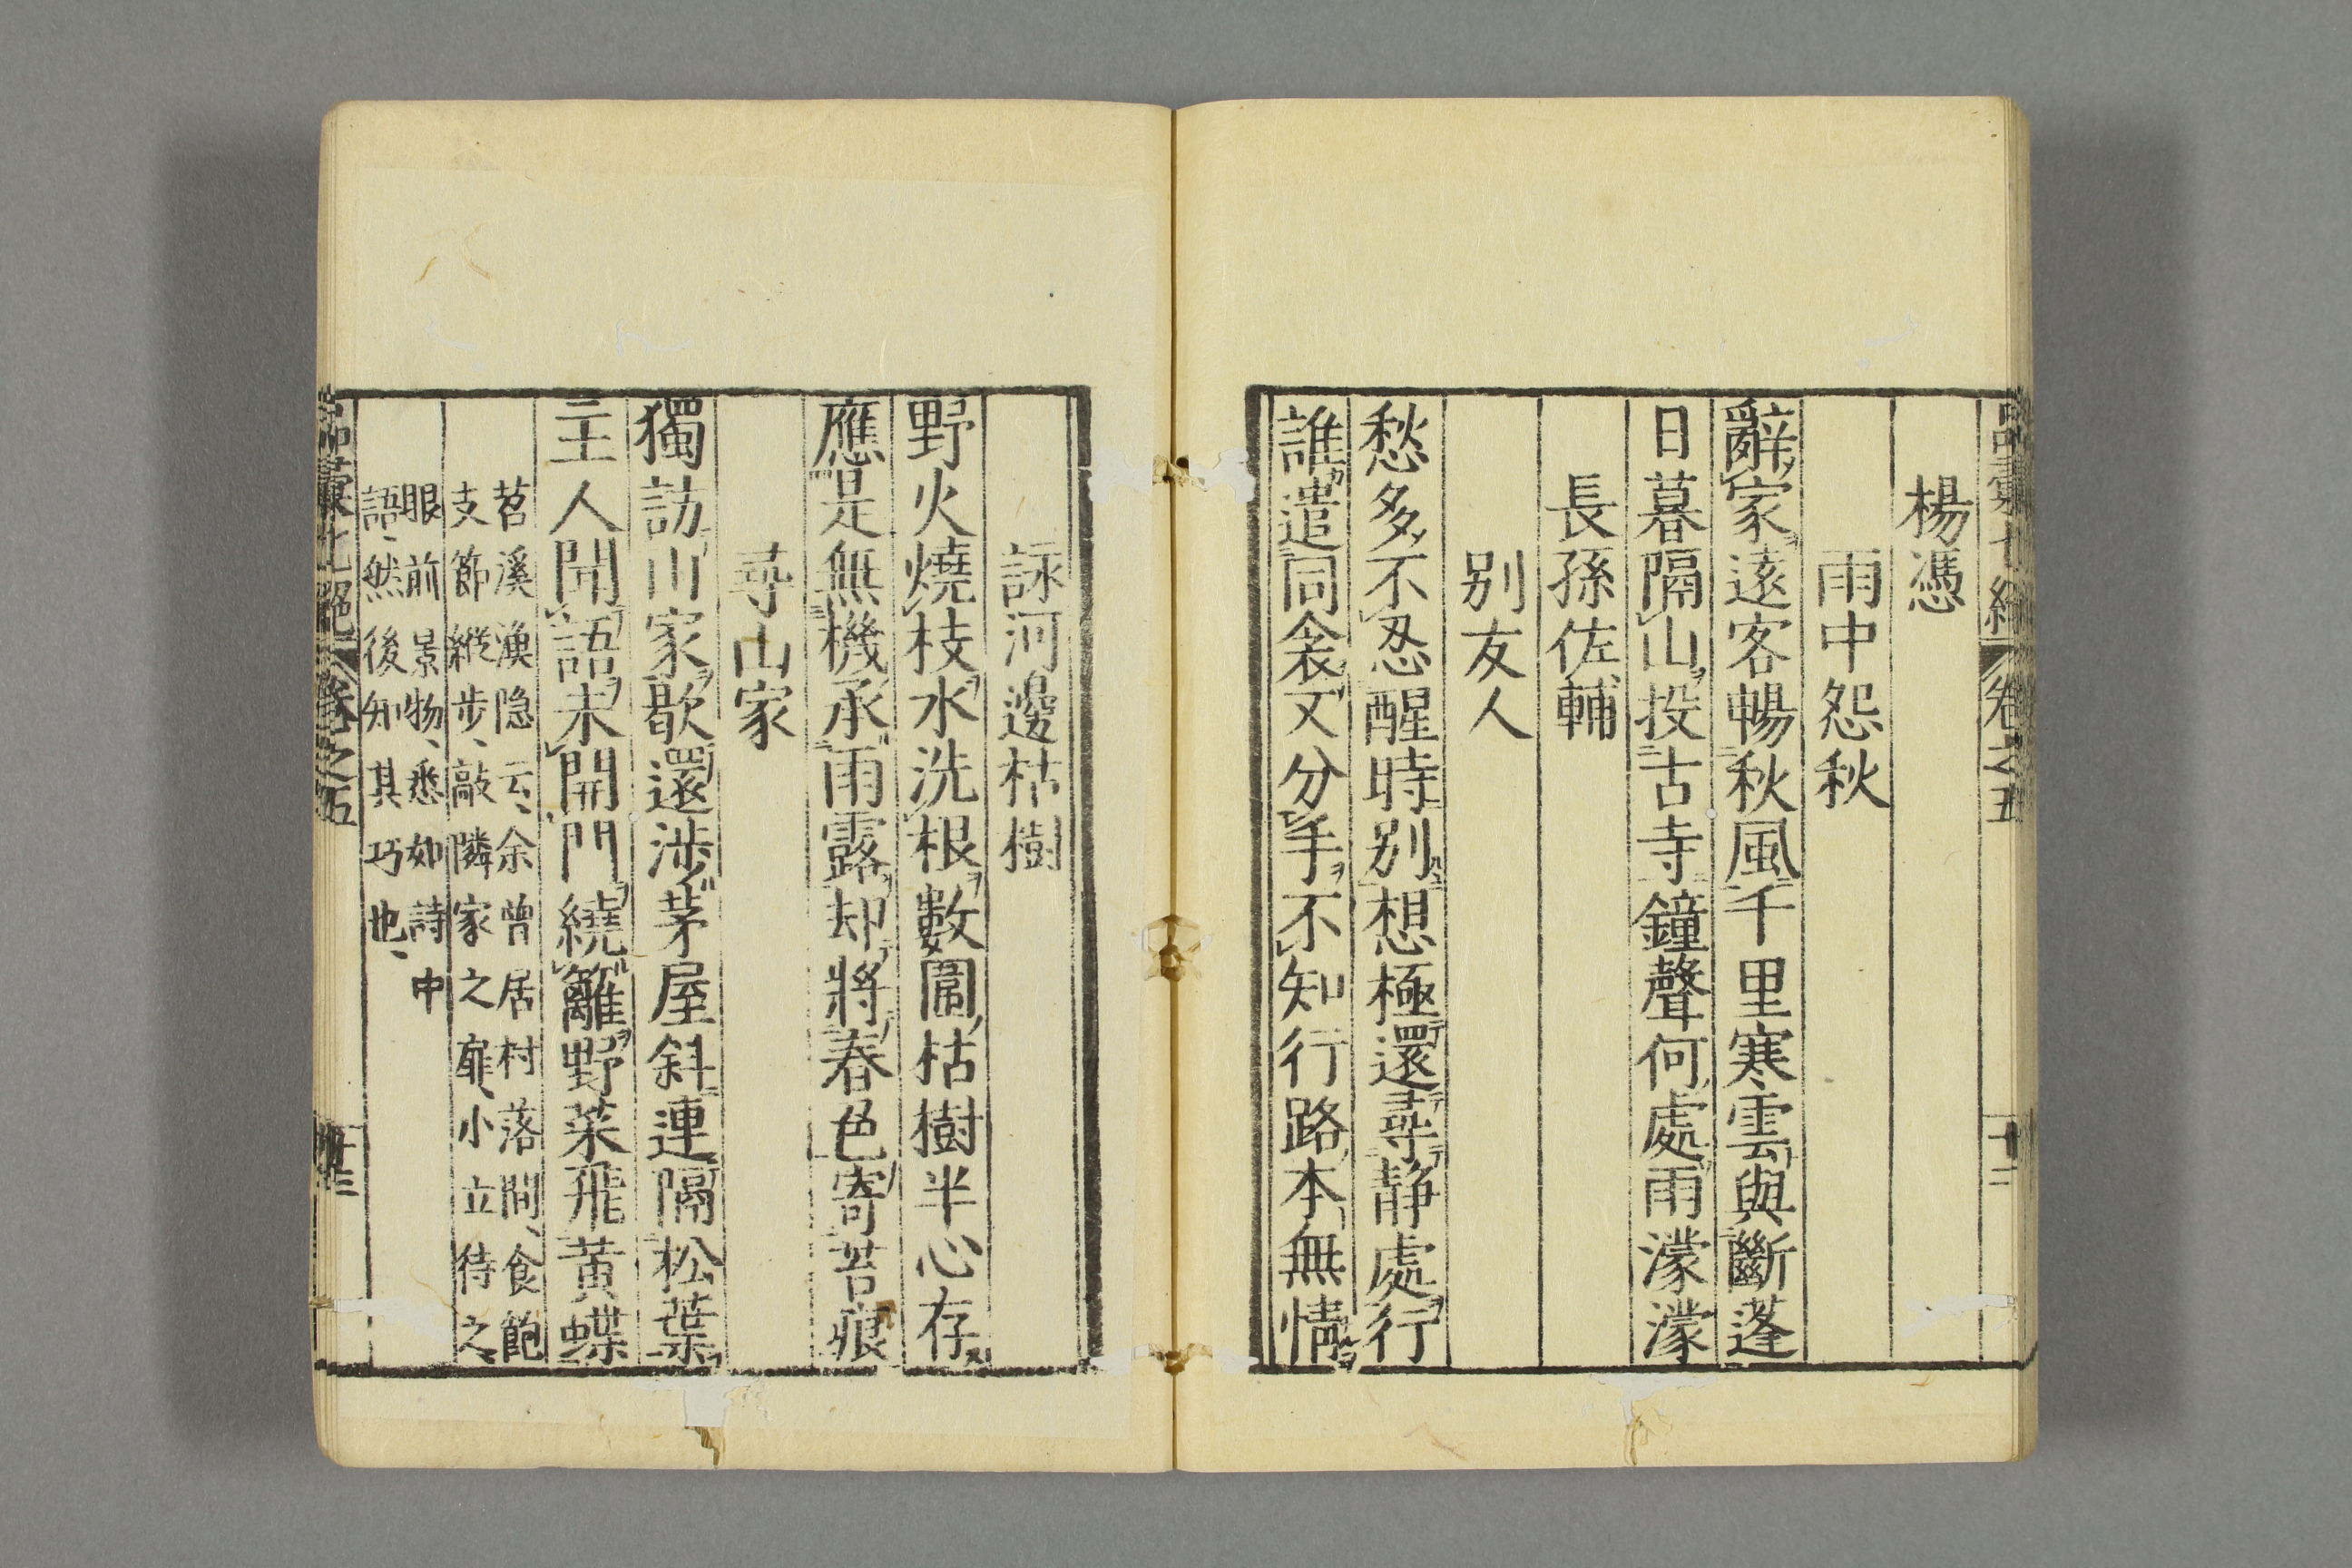 品彙七絶 卷之五 十二
楊憑
雨中怨秋
辭家遠客暢秋風千里寒雲與斷蓬
日暮隔山投古寺鐘聲何處雨濛濛
長孫佐輔
別友人
愁多不忍醒時別想極還尋静處行
誰遣同衾又分手不知行路本無情
詠河邊枯樹
野火燒枝水洗根數圍枯樹半心存
應是無機承雨露却將春色寄苔痕
尋山家
獨訪山家歇還涉茅屋斜連隔松葉
主人聞語未開門繞籬野菜飛黄蝶
苕溪漁隐云、余曾居村落間、食飽
支節縱步、敲隣家之扉、小立待之、
眼前景物、悉如詩中
語、然後知其巧也、
品彙七絶 卷之五 十三